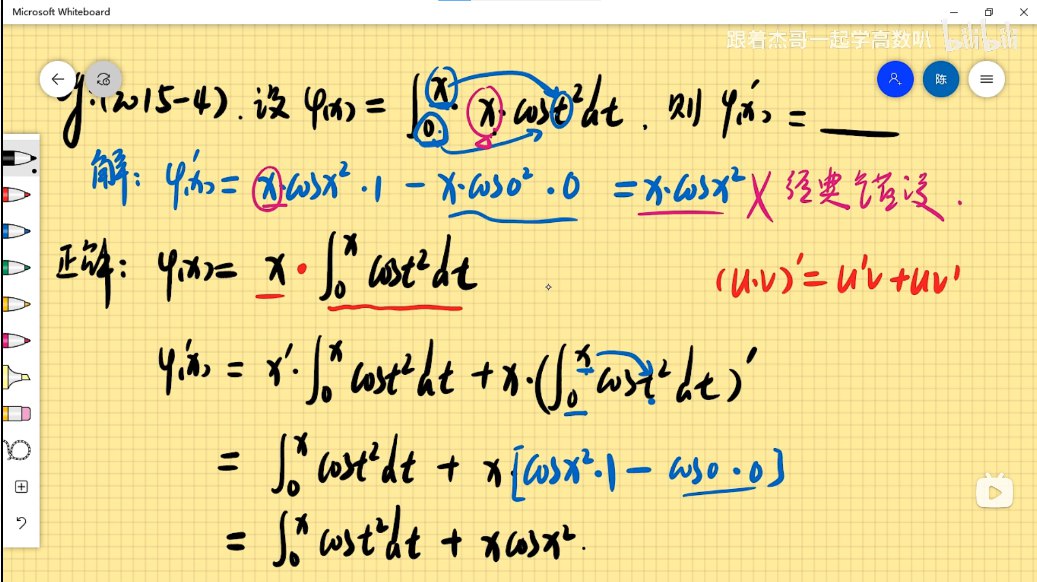 Microsoft Whiteboard
跟着杰哥一起学高数叭 bilibili
陈
例.(2015-4).设 φ(x) = ∫₀ˣ x·cost²dt, 则 φ'(x) = ____
解: φ'(x) = x·cosx²·1 - x·cos0²·0 = x·cosx² X 经典错误.
正解: φ(x) = x·∫₀ˣ cost²dt (u·v)' = u'v + uv'
φ'(x) = x'·∫₀ˣ cost²dt + x·(∫₀ˣ cost²dt)'
= ∫₀ˣ cost²dt + x·[cosx²·1 - cos0·0]
= ∫₀ˣ cost²dt + xcosx².